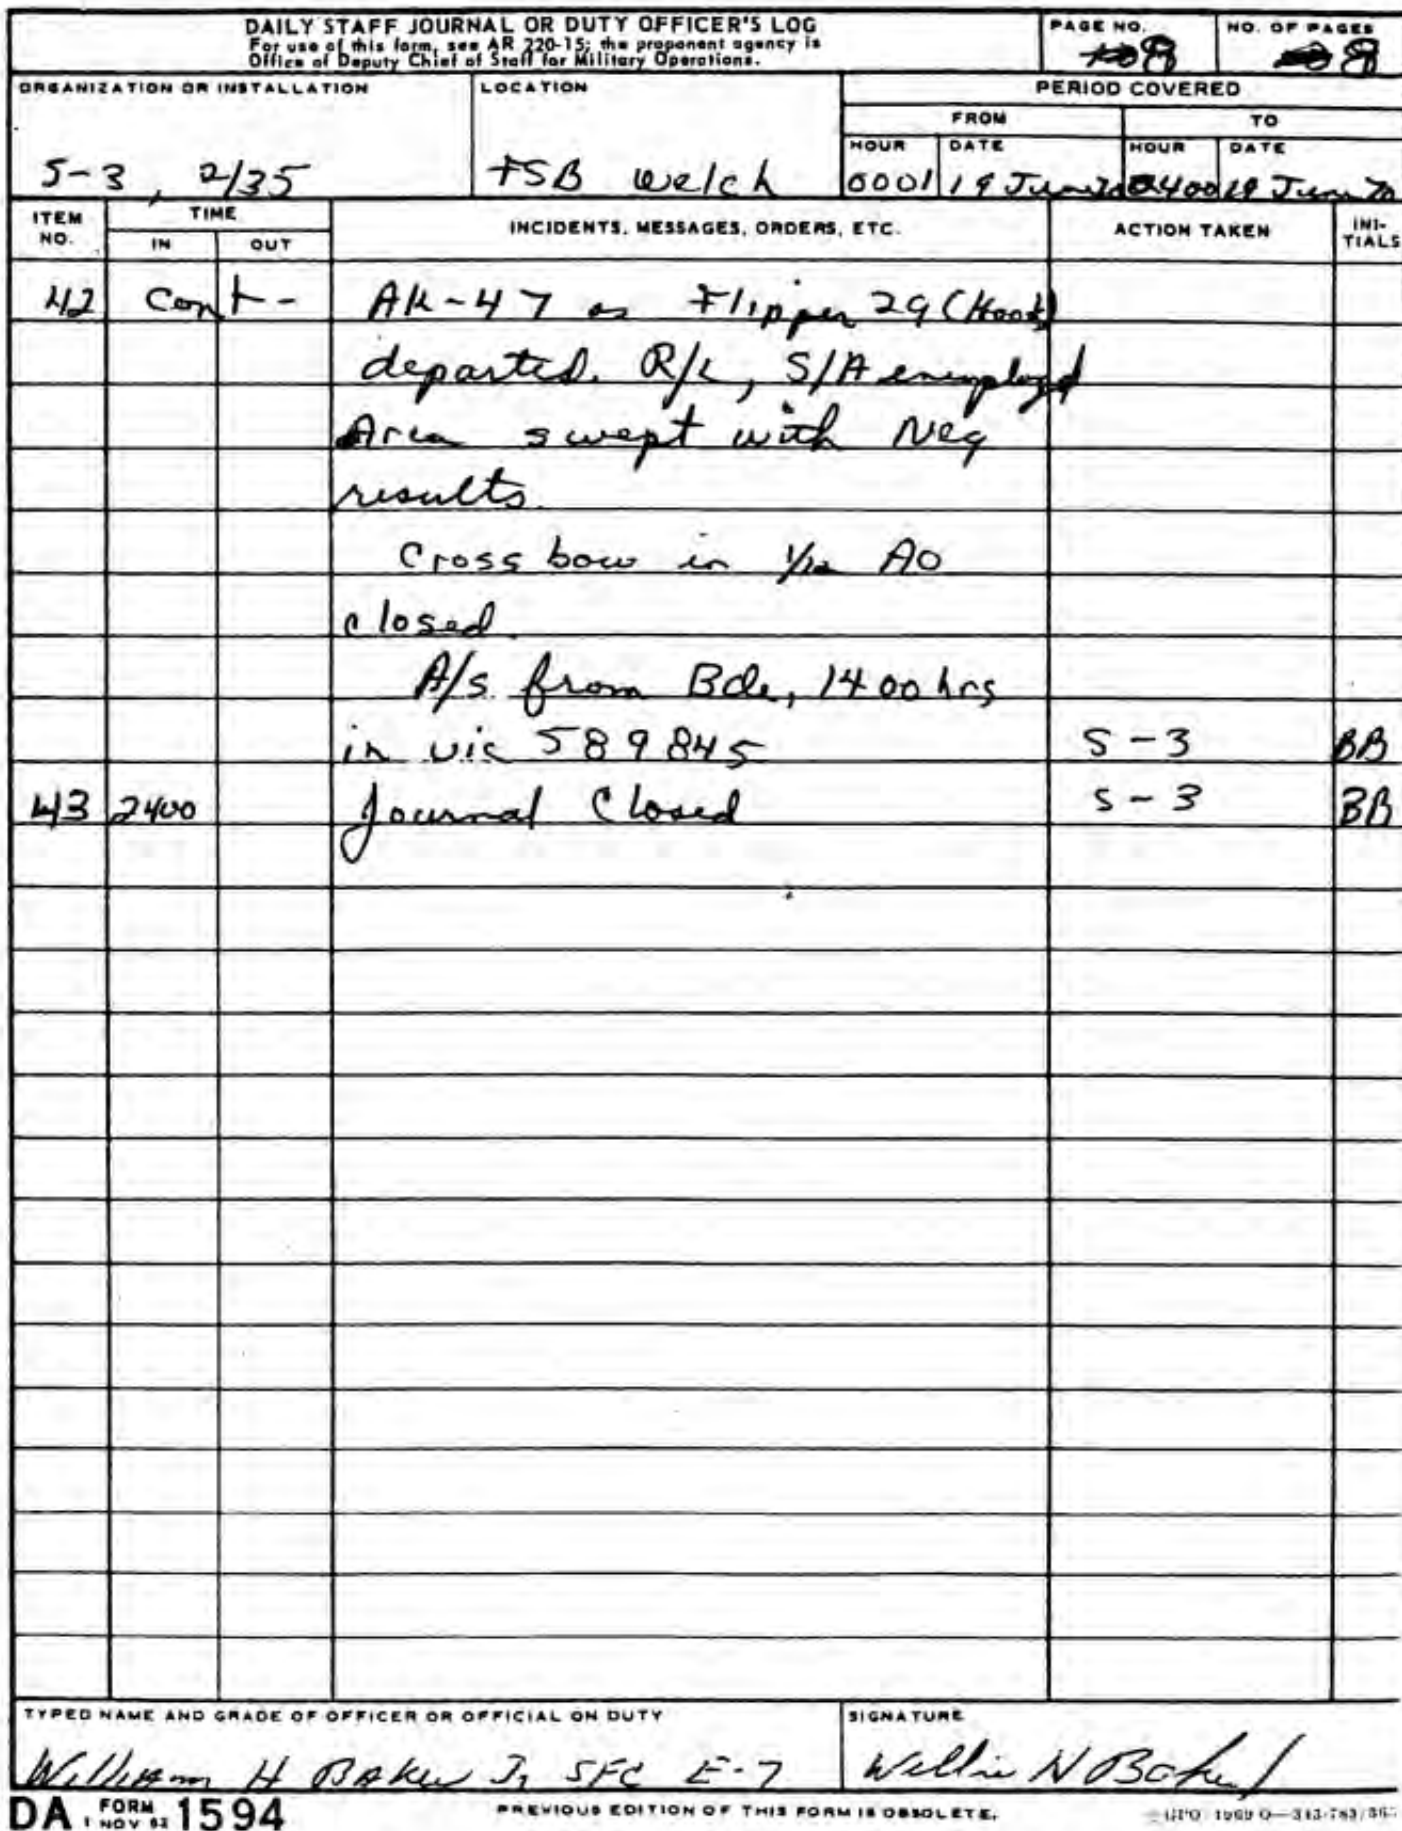 DAILY STAFF JOURNAL OR DUTY OFFICER'S LOG
For use of this form, see AR 220-15; the proponent agency is
Office of Deputy Chief of Staff for Military Operations.
PAGE NO.
8
NO. OF PAGES
8
ORGANIZATION OR INSTALLATION
S-3, 2/35
LOCATION
FSB Welch
PERIOD COVERED
FROM
TO
HOUR
DATE
HOUR
DATE
0001 19 June 70 2400 19 June 70
ITEM NO.
TIME
IN
OUT
INCIDENTS, MESSAGES, ORDERS, ETC.
ACTION TAKEN
INI-
TIALS
42 Cont- AK-47 as Flipper 29 (Hook)
departed. R/L, S/A
Area swept with Neg
results.
Cross bow in AO
closed.
A/S from Bde, 1400 hrs
in vic 589845 S-3 BB
43 2400 Journal Closed S-3 BB
TYPED NAME AND GRADE OF OFFICER OR OFFICIAL ON DUTY
William H Baker Jr SFC E-7
SIGNATURE
Baker
DA FORM 1594
1 NOV 62
PREVIOUS EDITION OF THIS FORM IS OBSOLETE.
GPO 1969 O-343-783/